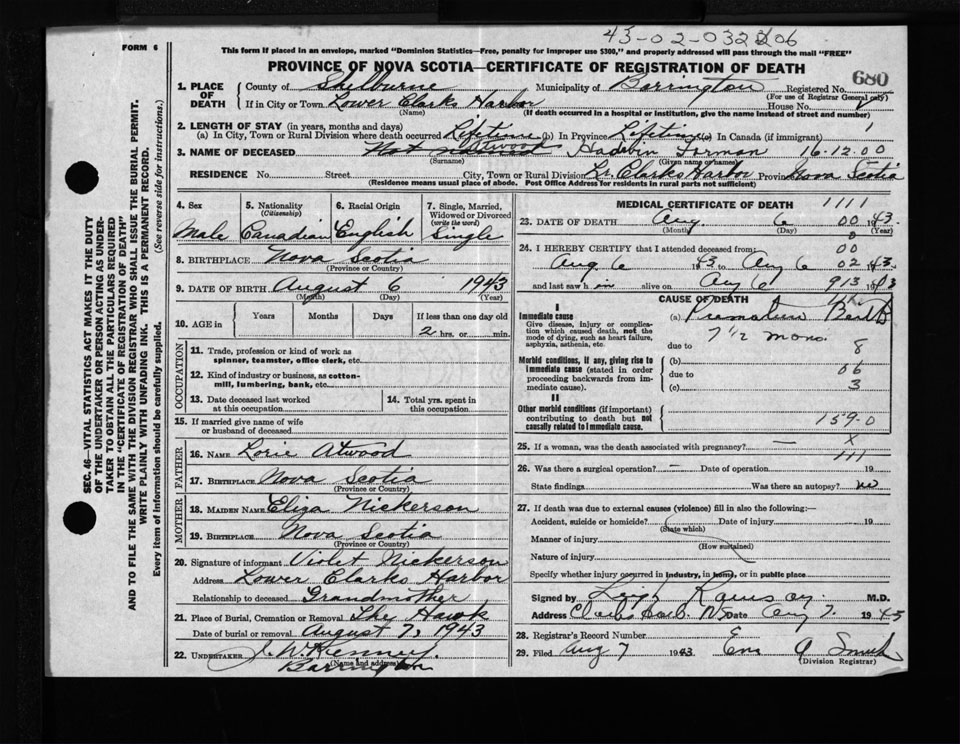 43-02-032206
FORM 6
This form if placed in an envelope, marked "Dominion Statistics—Free, penalty for improper use $300," and properly addressed will pass through the mail "FREE"
PROVINCE OF NOVA SCOTIA—CERTIFICATE OF REGISTRATION OF DEATH
680
1. PLACE OF DEATH
County of Shelburne Municipality of Barrington Registered No.
(For use of Registrar General only)
If in City or Town Lower Clarks Harbor House No.
(Name) (If death occurred in a hospital or institution, give the name instead of street and number)
2. LENGTH OF STAY (in years, months and days)
(a) In City, Town or Rural Division where death occurred Lifetime (b) In Province Lifetime (c) In Canada (if immigrant)
3. NAME OF DECEASED Not Atwood Forman 16-12.00
(Surname) (Given name or names)
RESIDENCE No. Street City, Town or Rural Division Lr. Clarks Harbor Province Nova Scotia
(Residence means usual place of abode. Post Office Address for residents in rural parts not sufficient)
4. Sex
Male
5. Nationality
(Citizenship)
Canadian
6. Racial Origin
English
7. Single, Married, Widowed or Divorced
(write the word)
Single
8. BIRTHPLACE Nova Scotia
(Province or Country)
9. DATE OF BIRTH August 6 1943
(Month) (Day) (Year)
10. AGE in
Years Months Days If less than one day old
2 hrs. or min.
OCCUPATION
11. Trade, profession or kind of work as spinner, teamster, office clerk, etc.
12. Kind of industry or business, as cotton-mill, lumbering, bank, etc.
13. Date deceased last worked at this occupation
14. Total yrs. spent in this occupation
15. If married give name of wife or husband of deceased
FATHER
16. NAME Lorie Atwood
17. BIRTHPLACE Nova Scotia
(Province or Country)
MOTHER
18. MAIDEN NAME Eliza Nickerson
19. BIRTHPLACE Nova Scotia
(Province or Country)
20. Signature of informant Violet Nickerson
Address Lower Clarks Harbor
Relationship to deceased Grandmother
21. Place of Burial, Cremation or Removal The Hawk
Date of burial or removal August 7, 1943
22. UNDERTAKER J. W. Kenney
(Name and address)
Barrington
MEDICAL CERTIFICATE OF DEATH 1111
23. DATE OF DEATH Aug 6 00 1943
(Month) (Day) (Year)
24. I HEREBY CERTIFY that I attended deceased from: 00
Aug 6 1943 to Aug 6 02 1943
and last saw h im alive on Aug 6 913 1943
CAUSE OF DEATH
I
Immediate cause
Give disease, injury or complication which caused death, not the mode of dying, such as heart failure, asphyxia, asthenia, etc.
(a) Premature Birth
7 1/2 mons.
due to 8
Morbid conditions, if any, giving rise to immediate cause (stated in order proceeding backwards from immediate cause).
(b)
due to 06
(c) 3
II
Other morbid conditions (if important) contributing to death but not causally related to immediate cause.
159-0
25. If a woman, was the death associated with pregnancy? — X
111
26. Was there a surgical operation? — Date of operation 19
State findings Was there an autopsy? no
27. If death was due to external causes (violence) fill in also the following:—
Accident, suicide or homicide? Date of injury 19
(State which)
Manner of injury
(How sustained)
Nature of injury
Specify whether injury occurred in industry, in home, or in public place
Signed by Leigh Ramsay M.D.
Address Clarks Harb. NS Date Aug 7. 1943
28. Registrar's Record Number
29. Filed Aug 7 1943 A Smith
(Division Registrar)
SEC. 46—VITAL STATISTICS ACT MAKES IT THE DUTY
OF THE UNDERTAKER OR PERSON ACTING AS UNDER-
TAKER TO OBTAIN ALL THE PARTICULARS REQUIRED
IN THE "CERTIFICATE OF REGISTRATION OF DEATH"
AND TO FILE THE SAME WITH THE DIVISION REGISTRAR WHO SHALL ISSUE THE BURIAL PERMIT.
WRITE PLAINLY WITH UNFADING INK. THIS IS A PERMANENT RECORD.
Every item of information should be carefully supplied. (See reverse side for instructions.)